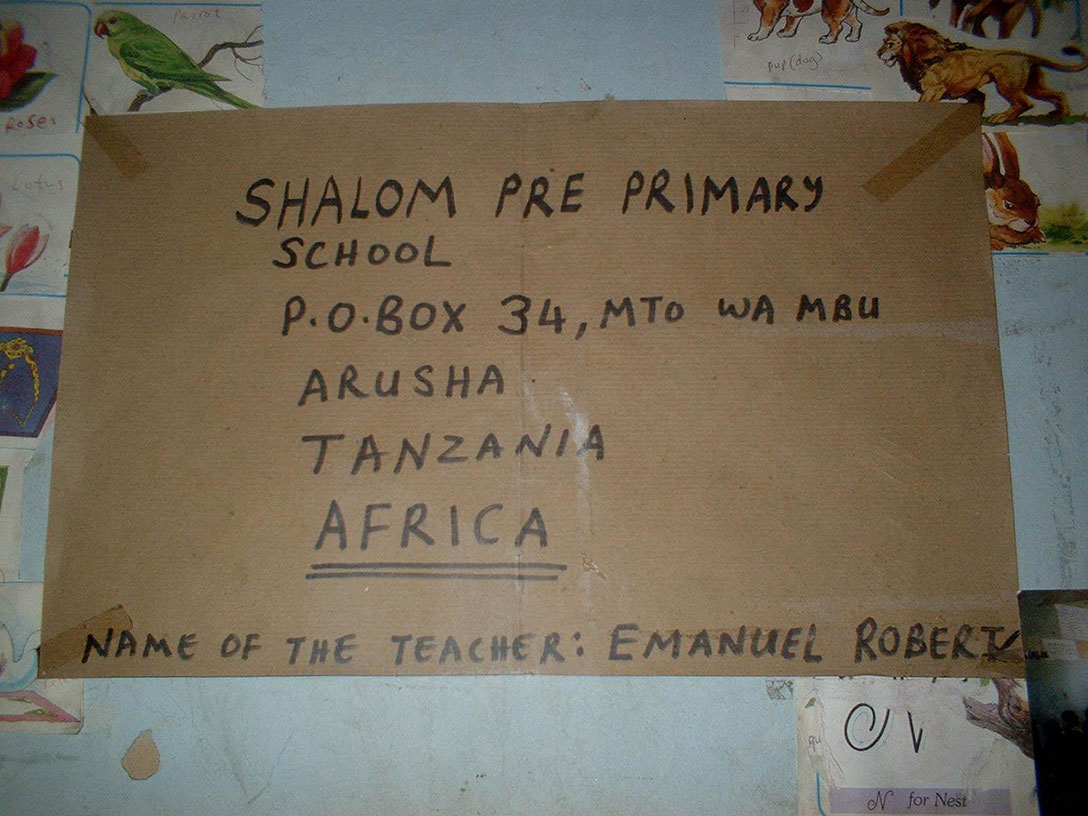 parrot
pup(dog)
Roses
Lotus
SHALOM PRE PRIMARY
SCHOOL
P.O.BOX 34, MTO WA MBU
ARUSHA
TANZANIA
AFRICA
NAME OF THE TEACHER: EMANUEL ROBERT
qu
N for Nest